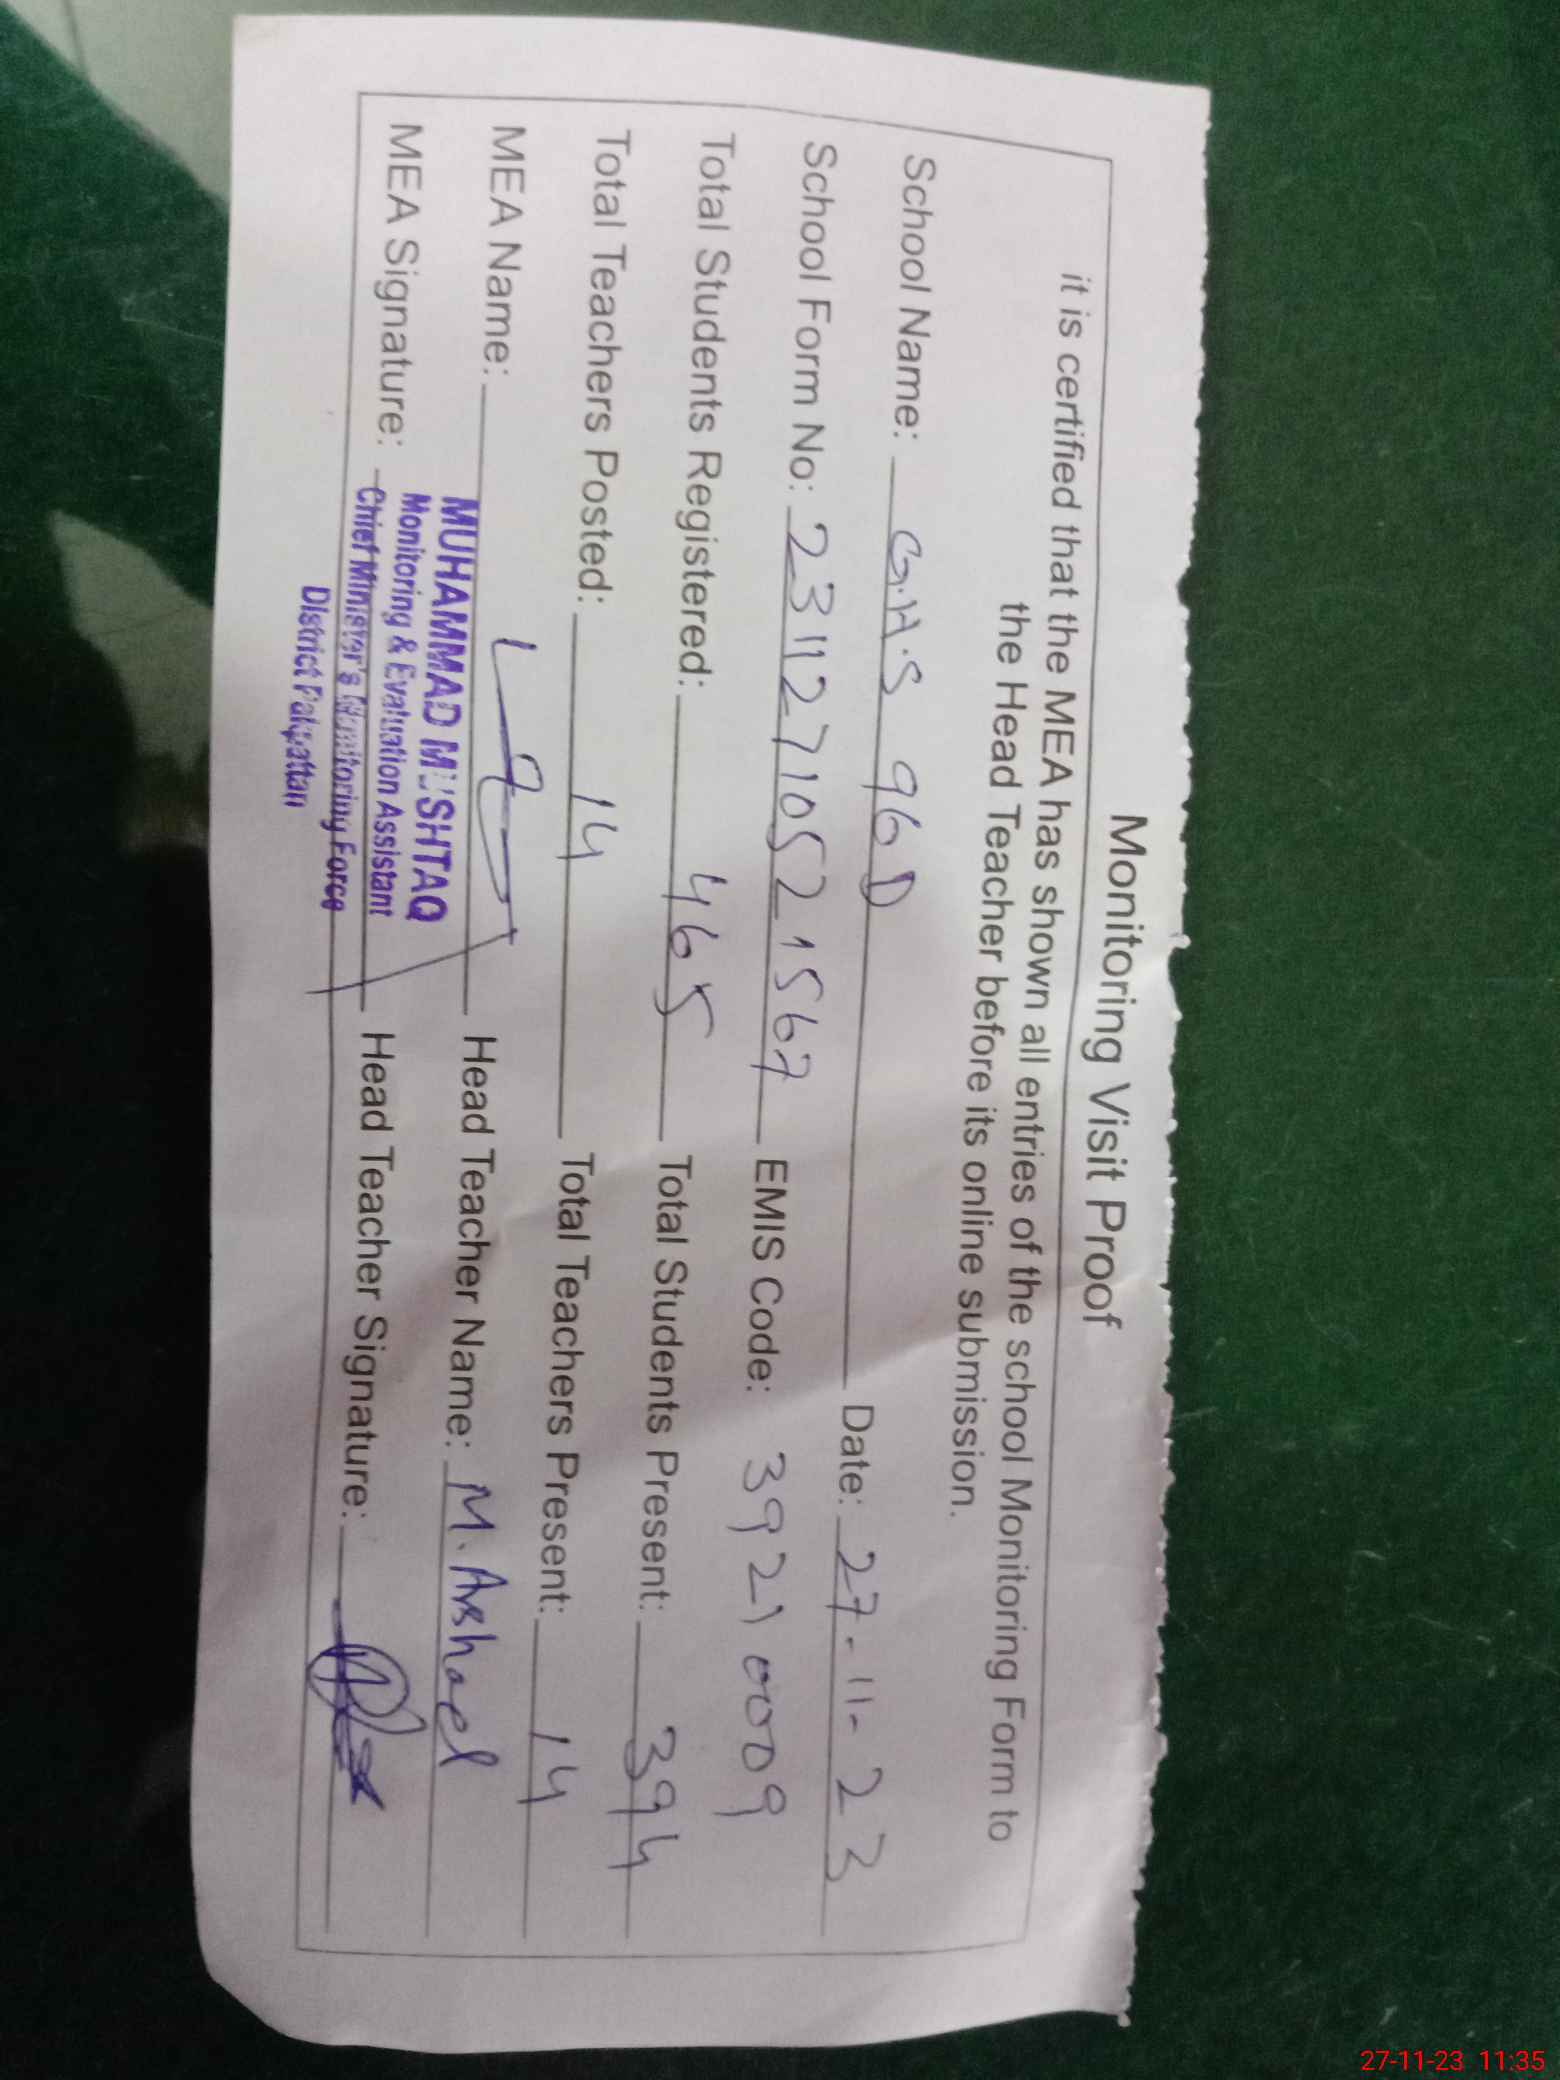 Monitoring Visit Proof
it is certified that the MEA has shown all entries of the school Monitoring Form to
the Head Teacher before its online submission.
School Name: G.H.S 96D Date: 27-11-23
School Form No: 23112710521567 EMIS Code: 39210009
Total Students Registered: 465 Total Students Present: 394
Total Teachers Posted: 14 Total Teachers Present: 14
MEA Name: Head Teacher Name: M. Arshael
MUHAMMAD MUSHTAQ
Monitoring & Evaluation Assistant
MEA Signature: Chief Minister's Monitoring Force Head Teacher Signature:
District Pakpattan
27-11-23 11:35